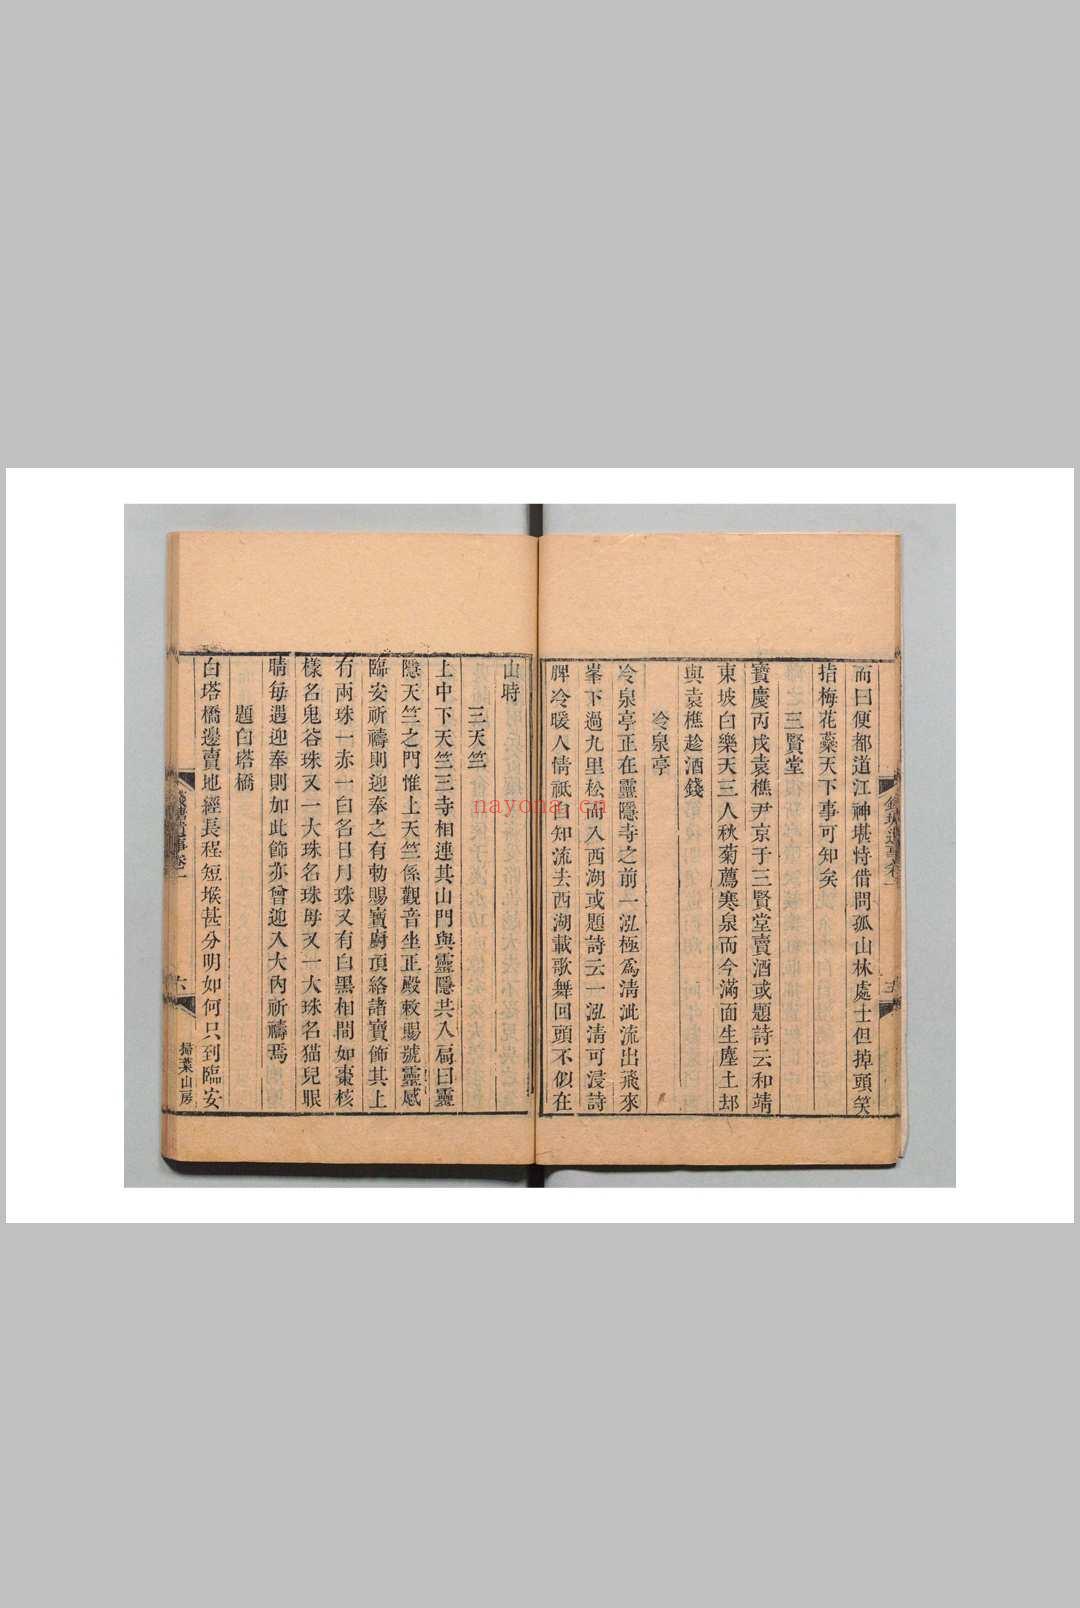 而曰便都道江神堪恃借問孤山林處士但掉頭笑
指梅花蘂天下事可知矣
三賢堂
寶慶丙戌袁樵尹京于三賢堂賣酒或題詩云和靖
東坡白樂天三人秋菊薦寒泉而今滿面生塵土却
與袁樵趁酒錢
冷泉亭
冷泉亭正在靈隱寺之前一泓極爲淸泚流出飛來
峯下過九里松而入西湖或題詩云一泓淸可浸詩
脾冷暖人情祇自知流去西湖載歌舞回頭不似在
山時
三天竺
上中下天竺三寺相連其山門與靈隱共入扁曰靈
隱天竺之門惟上天竺係觀音坐正殿敕賜號靈感
臨安祈禱則迎奉之有勅賜寶廚頂絡諸寶飾其上
有兩珠一赤一白名日月珠又有白黑相間如棗核
樣名鬼谷珠又一大珠名珠母又一大珠名猫兒眼
睛每遇迎奉則如此節亦曾迎入大內祈禱焉
題白塔橋
白塔橋邊賣地經長程短堠甚分明如何只到臨安
錢塘遺事卷一
六
掃葉山房
nayona.cn